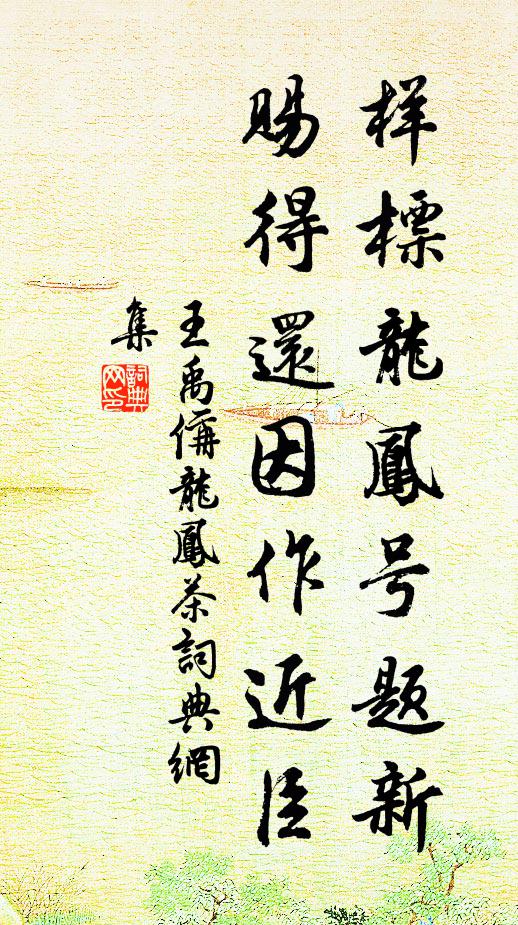 样標龍鳳号题新
賜得還因作近臣
王禹偁龍鳳茶詞典網
集
詞典
网印